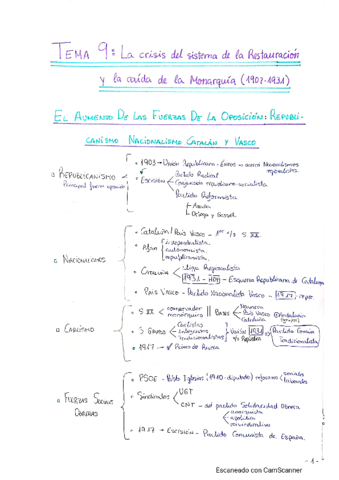 TEMA 9: La crisis del sistema de la Restauración
y la caída de la Monarquía (1902-1931)
EL AUMENTO DE LAS FUERZAS DE LA OPOSICIÓN: REPUBLI-
CANISMO NACIONALISMO CATALÁN Y VASCO
REPUBLICANISMO
Principal fuerza oposición
1903 → Unión Republicana
Escisión
Partido Radical
Conjunción republicano-socialista
Partido Reformista
Azaña
Ortega y Gasset
NACIONALISMO
Cataluña/País Vasco - 1er 1/3 S XX
independentista
autonomista
republicanismo
Cataluña
Lliga Regionalista
1931 - Esquerra Republicana de Catalunya
País Vasco - Partido Nacionalista Vasco
CARLISMO
S XX
conservador
monárquico
Bases
Navarra
País Vasco
Cataluña
3 Grupos
Carlistas
integristas
tradicionalistas
1931
Partido Común
Tradicionalista
1917
FUERZAS SOCIAL
OBRERAS
PSOE - Pablo Iglesias (1910-diputado) reformas
sociales
laborales
Sindicatos
UGT
CNT
Solidaridad Obrera
anarquista
apolítico
1917 → Escisión - Partido Comunista de España.
- 1 -
Escaneado con CamScanner